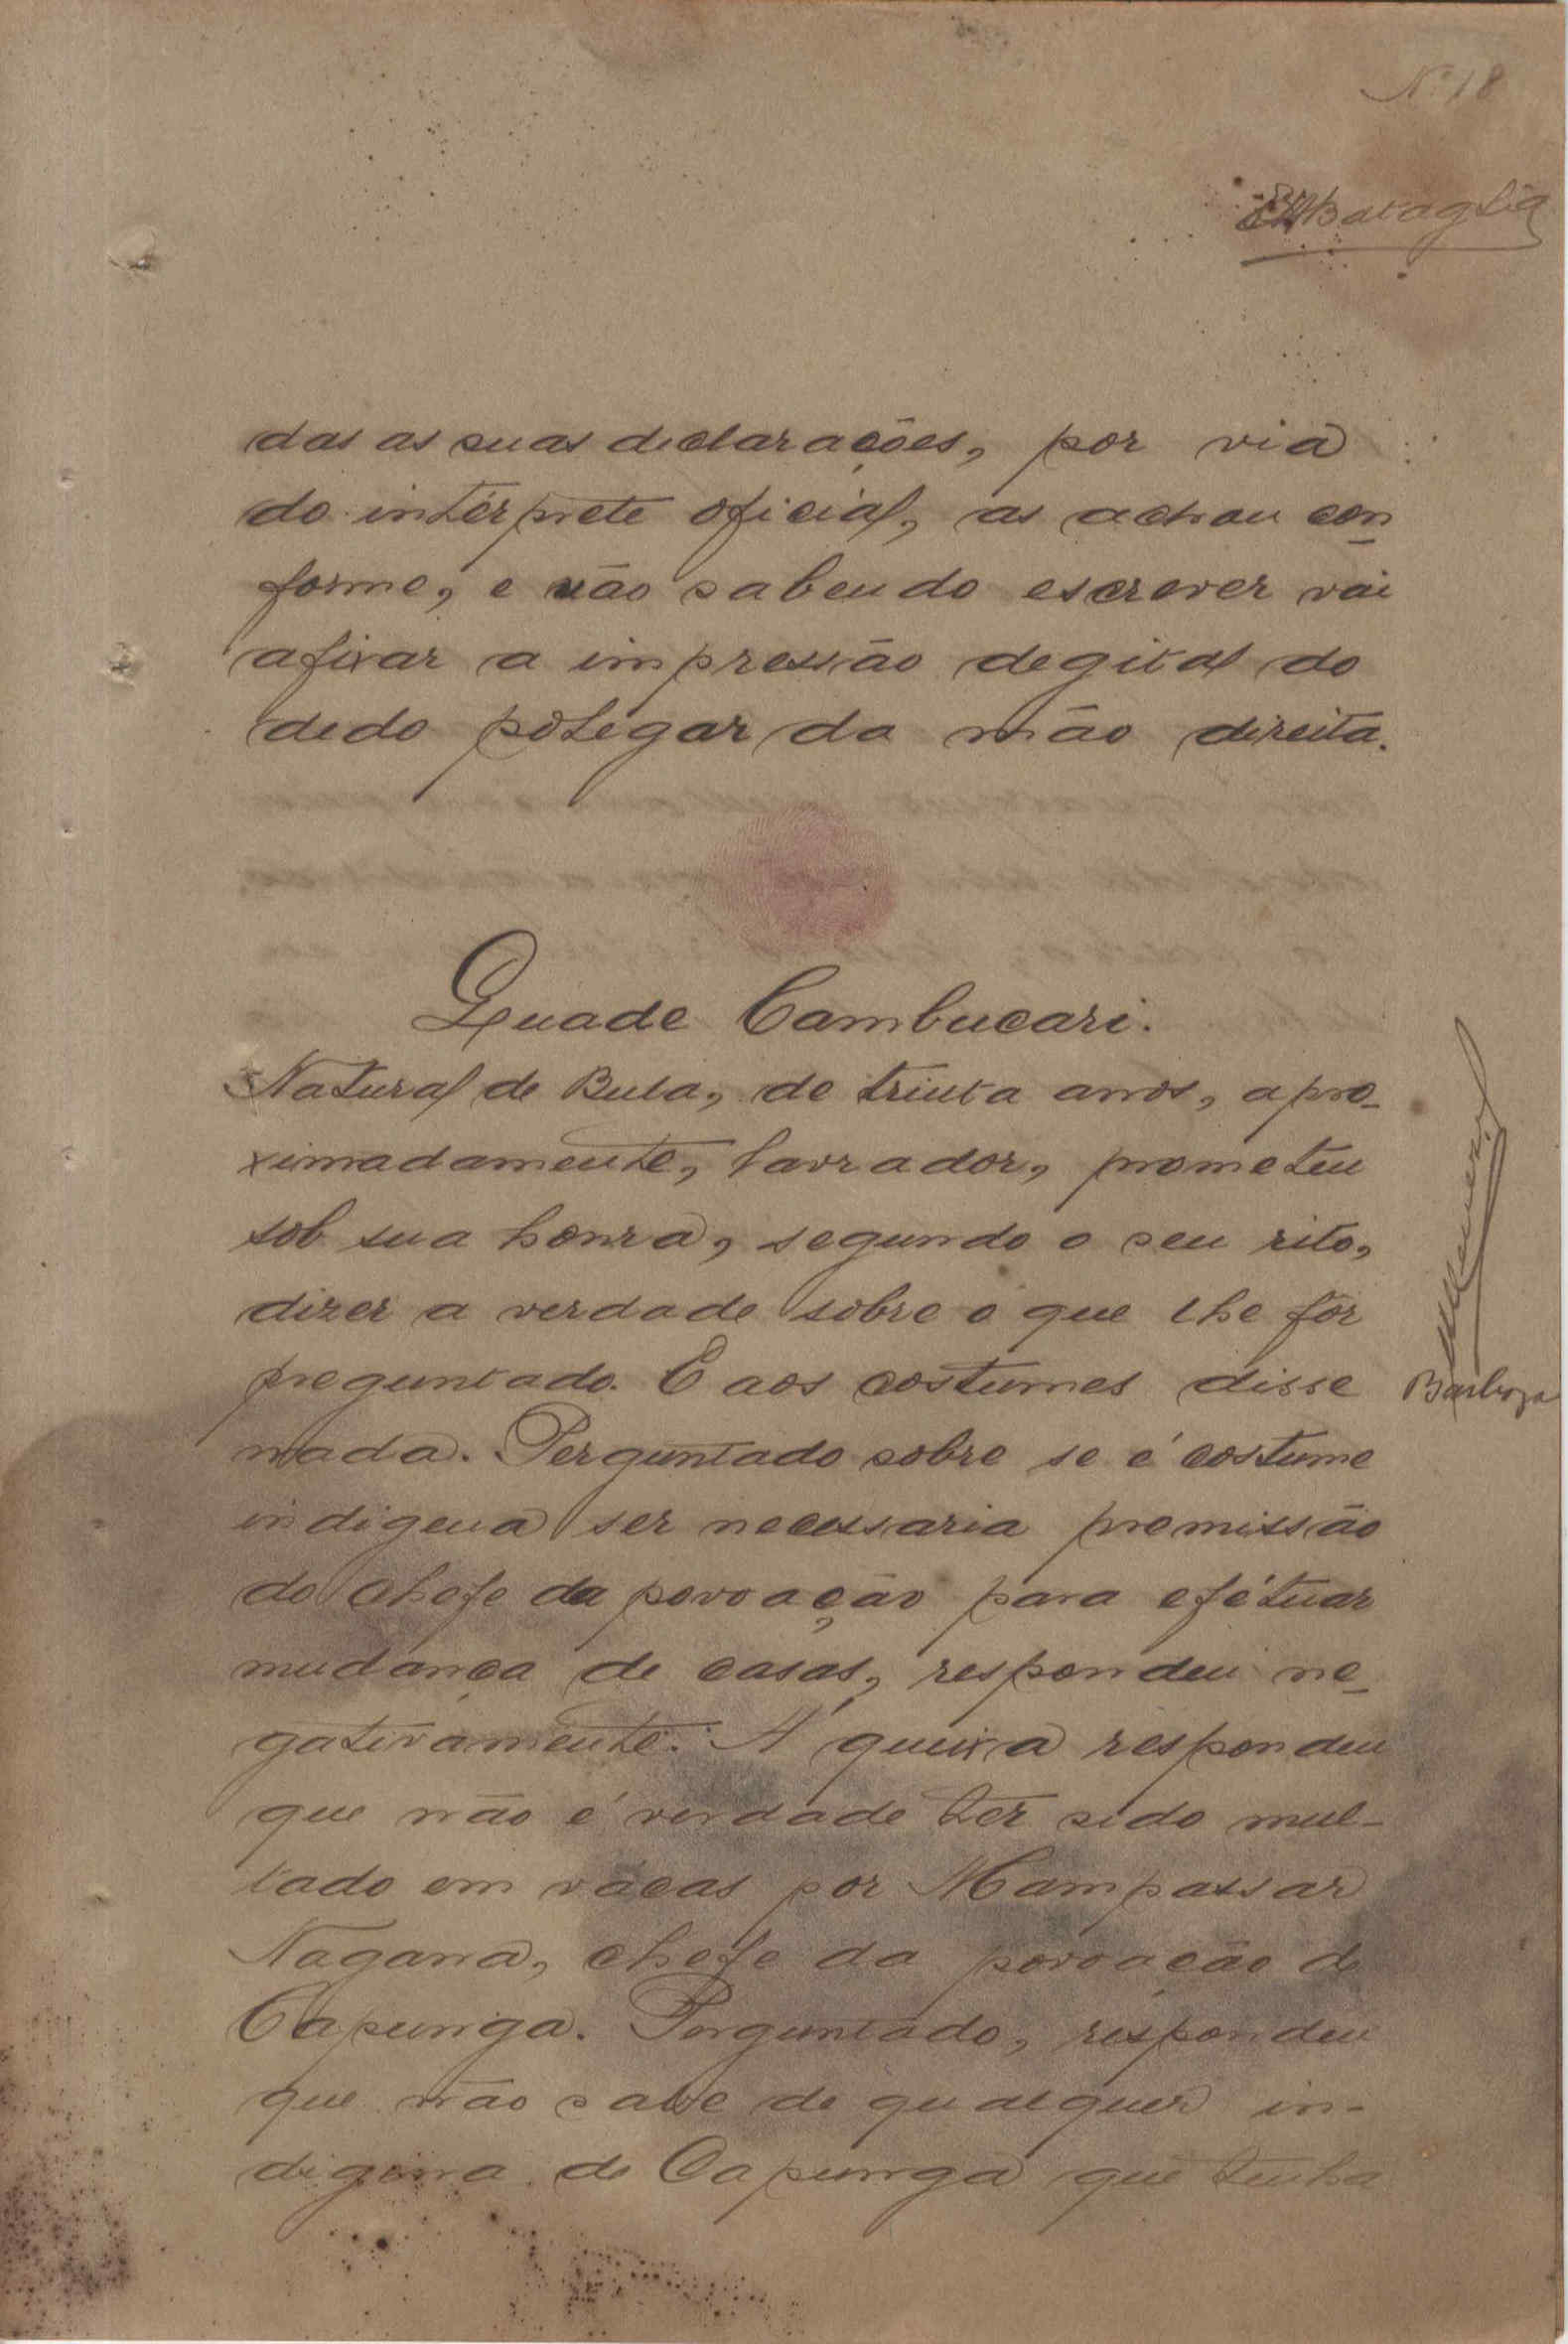 Nº 18
Bataglia
das as suas declarações, por via
do intérprete oficial, as achou con-
forme, e não sabendo escrever vai
afixar a impressão degital do
dedo polegar da mão direita.
Quade Cambucari.
Natural de Bula, de trinta anos, apro-
ximadamente, lavrador, prometeu
sob sua honra, segundo o seu rito,
dizer a verdade sobre o que lhe fôr
preguntado. E aos costumes disse
nada. Perguntado sobre se é costume
indigena ser necessaria premissão
do chefe da povoação para efétuar
mudança de casas, respondeu ne-
gativamente. Á queixa respondeu
que não é verdade ter sido mul-
tado em vácas por Mampassar
Nagana, chefe da povoação de
Capunga. Perguntado, respondeu
que não sabe de qualquer in-
digena de Capunga que tenha
Barboza